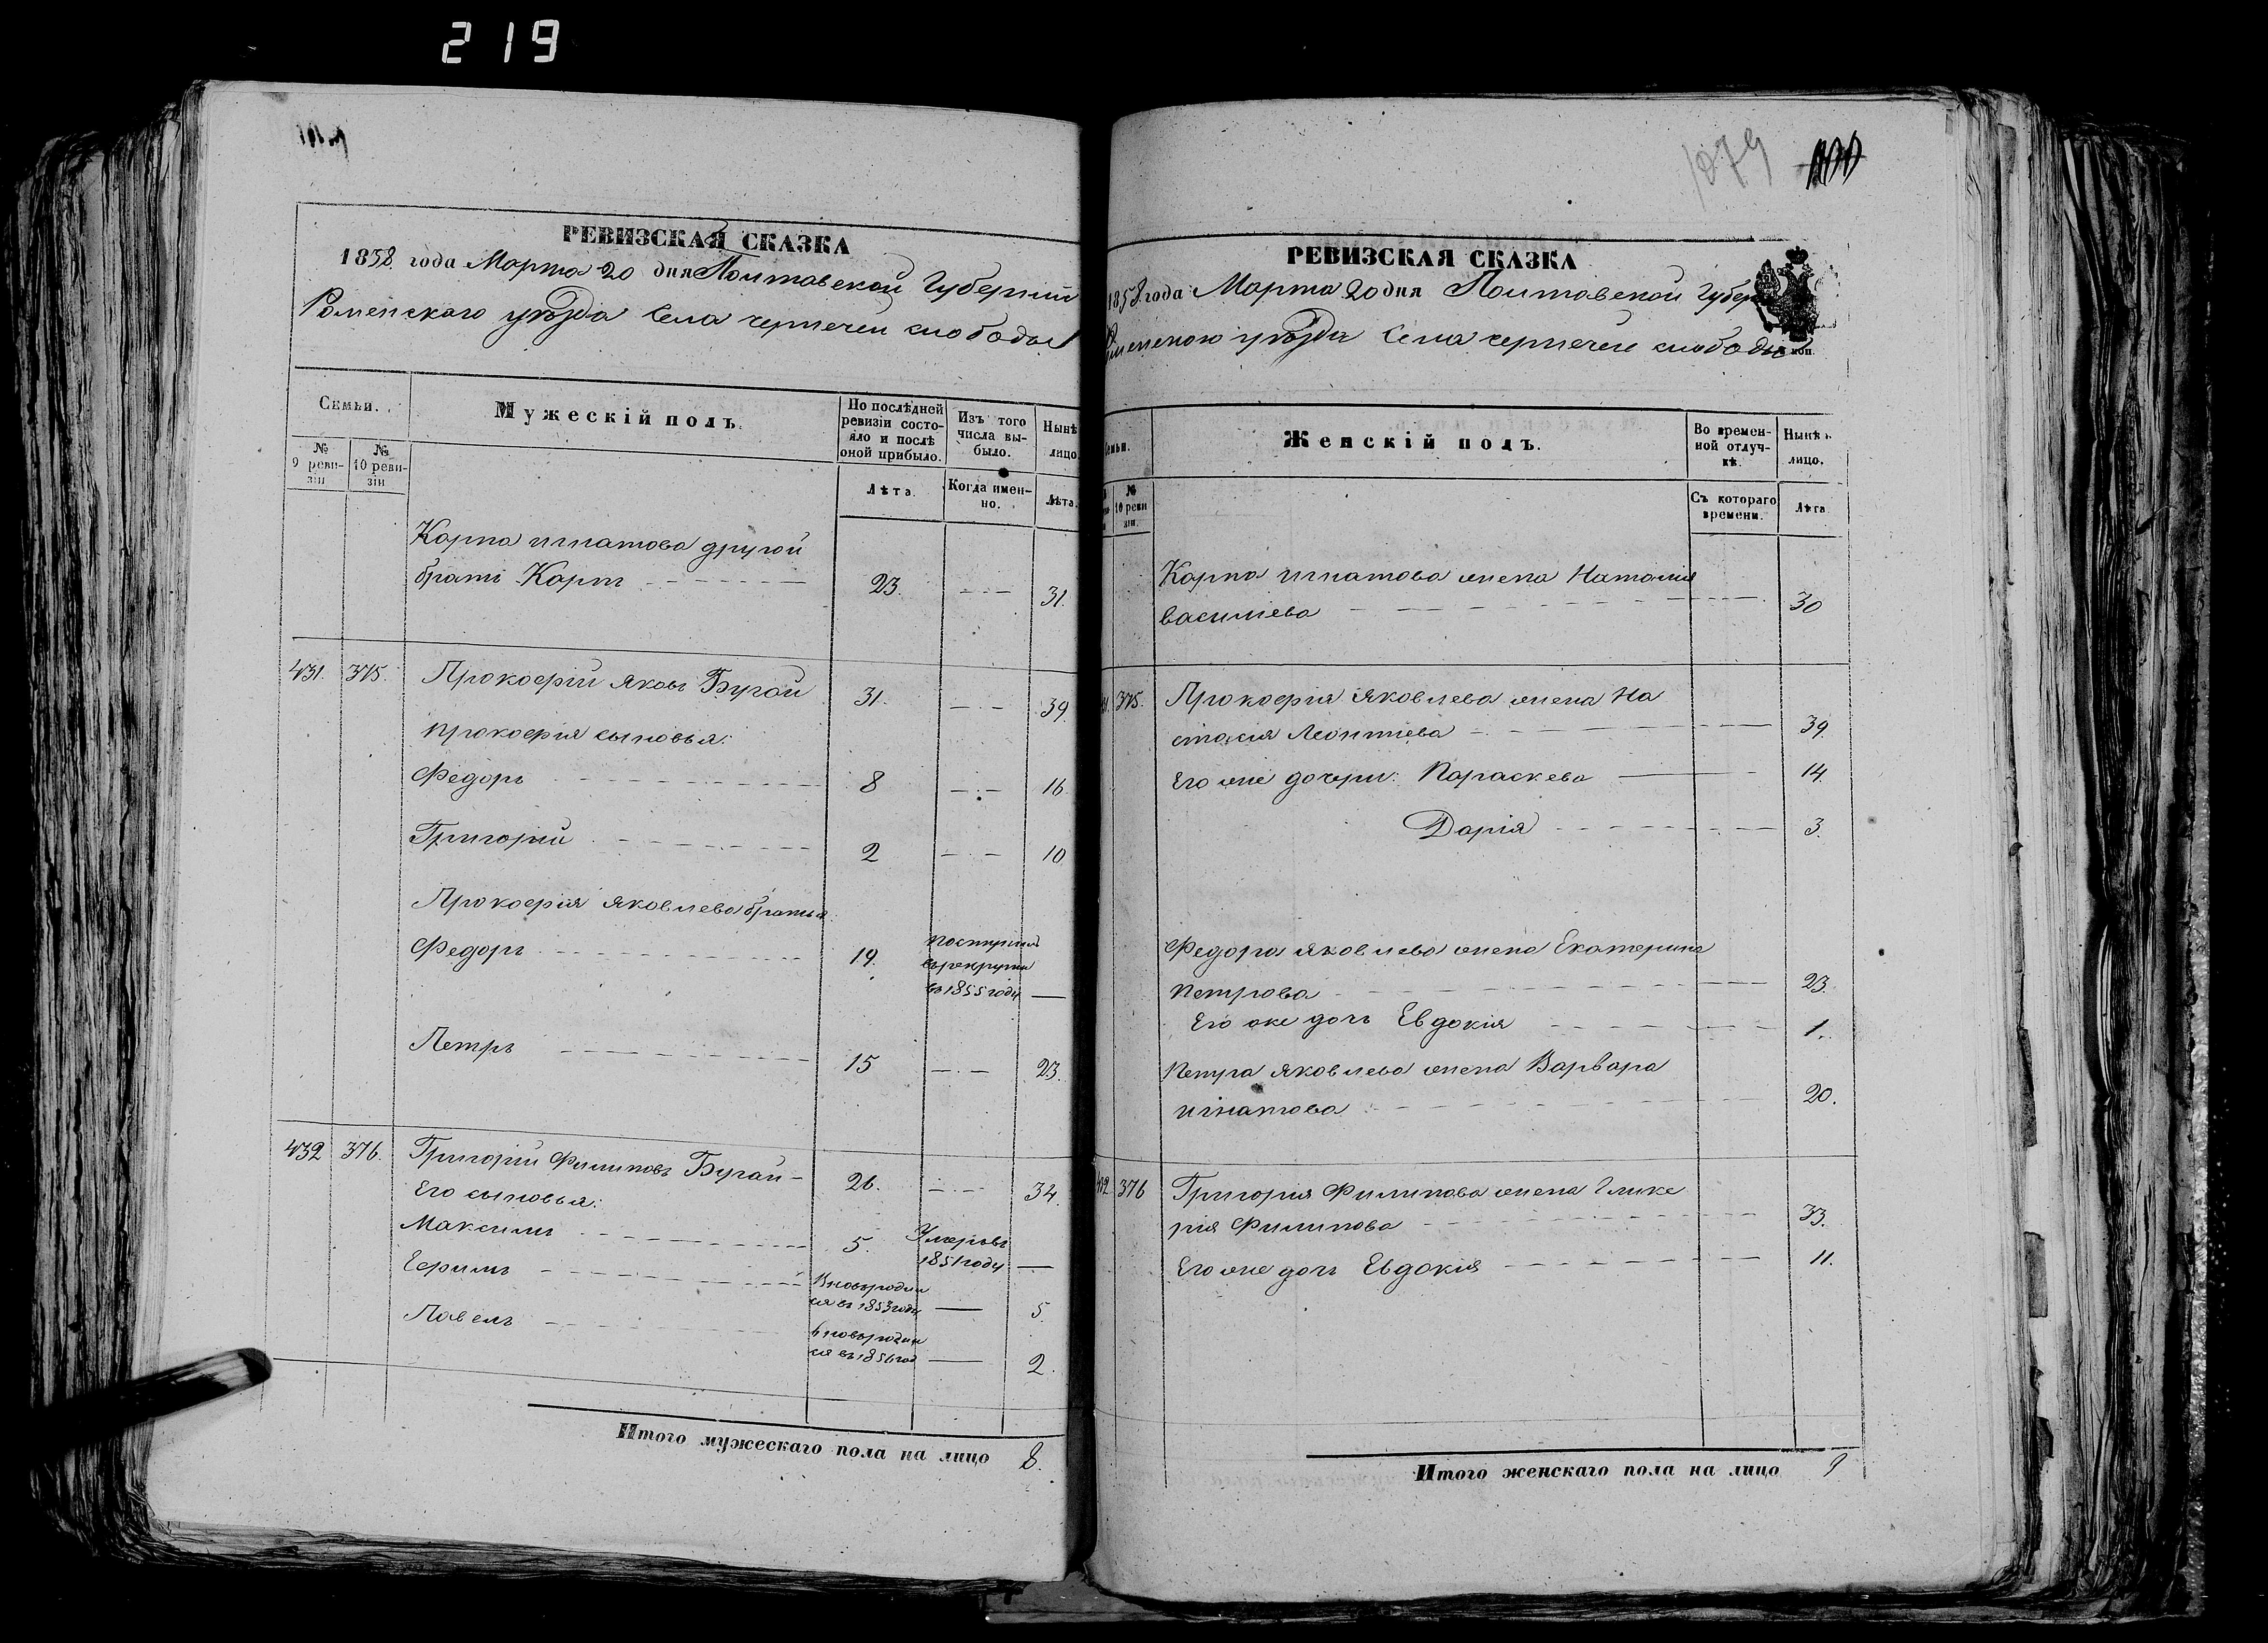 219
РЕВИЗСКАЯ СКАЗКА
1858 года Марта 20 дня Полтавской Губернии
Роменского уѣзда Села чернечей слободы
Семьи.
Мужескій полъ.
По послѣдней ревизіи состояло и послѣ оной прибыло.
Изъ того числа выбыло.
Нынѣ лицо
№ 9 ревизіи
№ 10 ревизіи
Лѣта.
Когда именно.
Лѣта.
Карпа игнатова другой
братъ Карпъ 23. 31.
431. 375. Прокофій Яковъ Бугай 31. 39
прокофія сыновья:
Федоръ 8 16
Григорій 2 10
Прокофія Яковлева братья
Федоръ 19. поступилъ
въ рекруты
въ 1855 году —
Петръ 15 23.
432 376. Григорій Филиповъ Бугай 26. 34.
Его сыновья:
Максимъ 5. Умеръ въ
1851 году —
Ефимъ Вновь родил
ся въ 1853 году — 5.
Павелъ вновь родил
ся въ 1856 год — 2.
Итого мужескаго пола на лицо 8.
1279
100
РЕВИЗСКАЯ СКАЗКА
1858 года Марта 20 дня Полтавской Губер
Роменского уѣзда Села чернечей слободы
коп.
Семьи.
Женскій полъ.
Во временной отлучкѣ.
Нынѣ лицо.
№ 10 ревизіи.
Съ котораго времени.
Лѣта
Карпа игнатова жена Наталия
василиева 30
375. Прокофія Яковлева жена На
стасия Леонтиева 39.
Его же дочери: Параскева 14.
Дарія 3.
Федора яковлева жена Екатерина
петрова 23.
Его же дочь Евдокія 1.
Петра яковлева жена Варвара
игнатова 20.
432 376 Григория Филипова жена Глике
рія Филипова 33.
Его же дочь Евдокія 11.
Итого женскаго пола на лицо 9